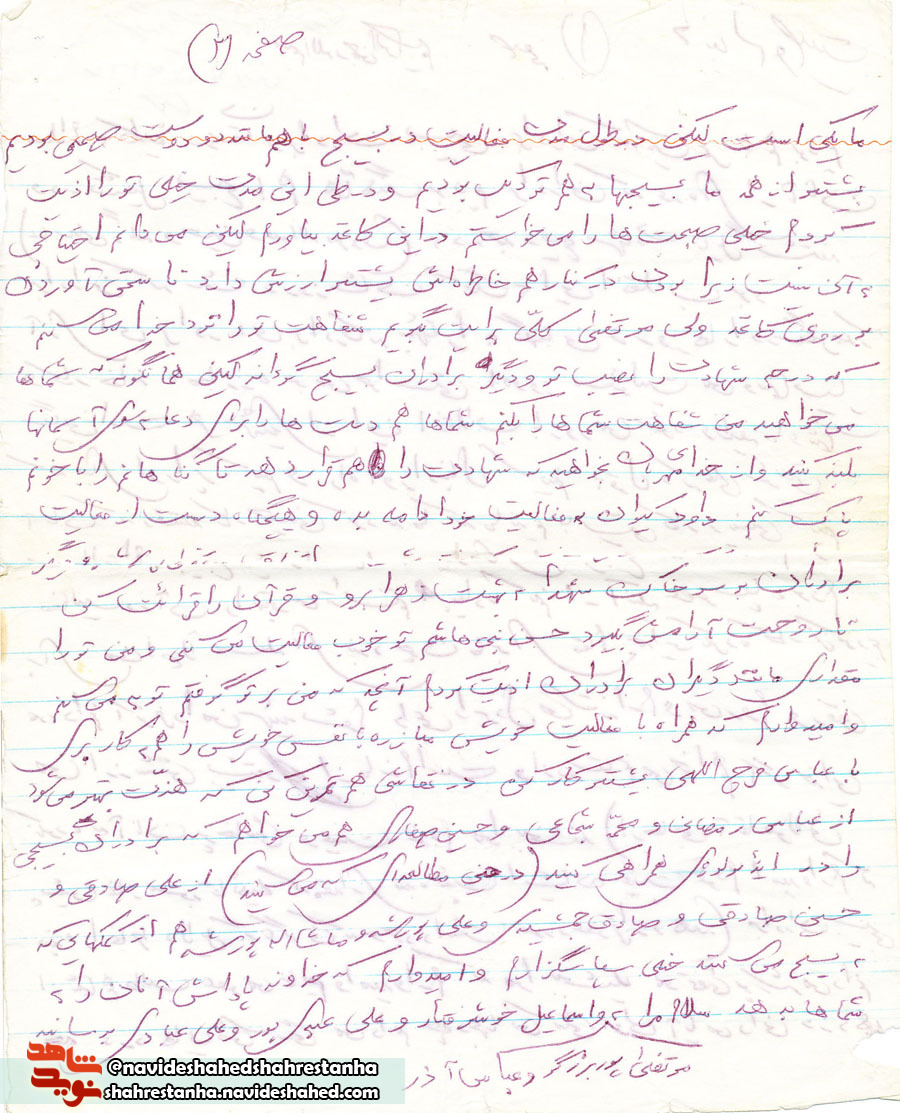 صفحه (۲)
ما یکی است لیکن در طول مدت فعالیت در بسیج با هم مانند دو دوست صمیمی بودیم
بیشتر از همه ما بسیجیها به هم نزدیک بودیم و در طی این مدت خیلی تو را اذیت
کردم خیلی صحبت ها را می خواستم در این کاغذ بیاورم لیکن می دانم احتیاجی
به آن نیست زیرا بودن در کنار هم خاطره اش بیشتر ارزش دارد تا سختی آوردن
بر روی کاغذ ولی مرتضی کلی برایت بگویم شفاعت تو را نزد خدا می کنم
که درجه شهادت را نصیب تو و دیگر برادران بسیج گرداند لیکن همانگونه که شماها
می خواهید من شفاعت شماها را بکنم شماها هم دست ها را برای دعا به سوی آسمانها
بلند کنید و از خدای مهربان بخواهید که شهادت را هم قرار دهد تا گناهانم را با خونم
پاک کنم داود کیان به فعالیت خود ادامه بده و هیچگاه دست از فعالیت
برادران بر سر خاک شهدا به بهشت زهرا برو و قرآن را قرائت کن
تا روحت آرامش بگیرد حسن بنی هاشم تو خوب فعالیت می کنی و من تو را
مقداری مانند دیگران برادران اذیت کردم آنچه که من بر تو گرفتم توبه می کنم
و امیدوارم که همراه با فعالیت خویش مبارزه با نفس خویش را هم بکار بری
با عباس فرج اللهی بیشتر کار کن در نقاشی هم تمرین کن که هنرت بهتر می شود
از عباس رمضانی و محمد شجاعی و حسین صفاری هم می خواهم که برادران بسیجی
را در ایدئولوژی همراهی کنید (در حین مطالعه ای که می کنید) از علی صادقی و
حسین صادقی و صادق جمشیدی و علی و ماشااله هم از کمکهایی که
به بسیج می کنند خیلی سپاسگزارم و امیدوارم که خداوند پاداش آنان را به
شماها بدهد سلام مرا به اسماعیل خوشرفتار و علی عبدی پور و علی عبادی برسانید
مرتضی پوربرزگر و عباس آذر
شاهد
نوید
@navideshahedshahrestanha
shahrestanha.navideshahed.com